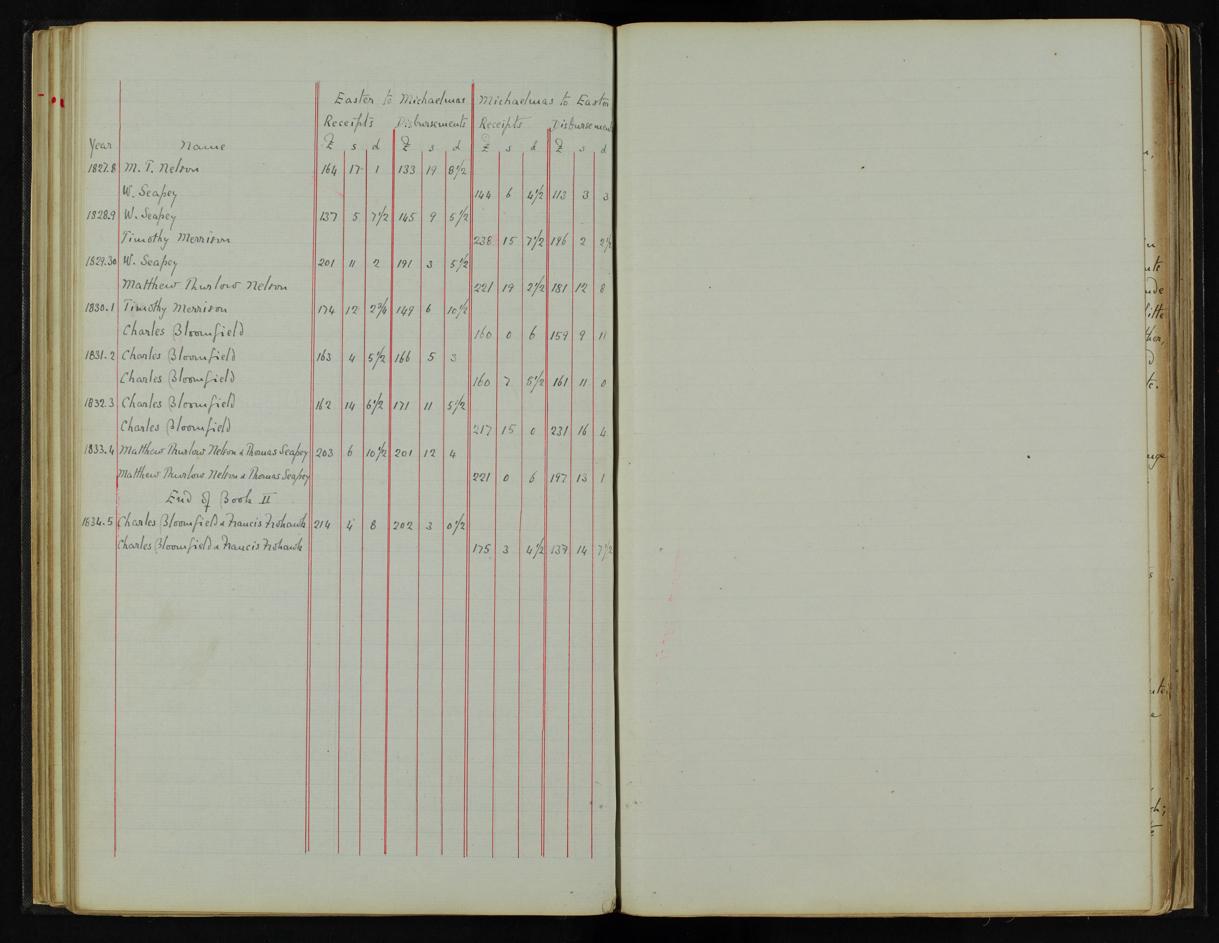 Easter to Michaelmas Michaelmas to Easter
Receipts Disbursements Receipts Disbursements
Year Name £ s d £ s d £ s d £ s d
1827.8 M. T. Nelson 164 17 1 133 19 8½
W. Seapey 144 6 4½ 113 3 3
1828.9 W. Seapey 137 5 7½ 145 9 5½
Timothy Merrison 238 15 7½ 196 2 2½
1829.30 W. Seapey 201 11 2 191 3 5½
Matthew Thurlow Nelson 221 19 2½ 181 12 8
1830.1 Timothy Merrison 174 12 2¾ 149 6 10½
Charles Bloomfield 160 0 6 159 9 11
1831.2 Charles Bloomfield 163 4 5½ 166 5 3
Charles Bloomfield 160 7 5½ 161 11 0
1832.3 Charles Bloomfield 162 14 6½ 171 11 5½
Charles Bloomfield 217 15 0 231 16 4
1833.4 Matthew Thurlow Nelson & Thomas Seapey 203 6 10½ 201 12 4
Matthew Thurlow Nelson & Thomas Seapey 221 0 6 197 13 1
End of Book II
1834.5 Charles Bloomfield & Francis Frohawk 214 4 8 202 3 0½
Charles Bloomfield & Francis Frohawk 175 3 4½ 137 14 7½